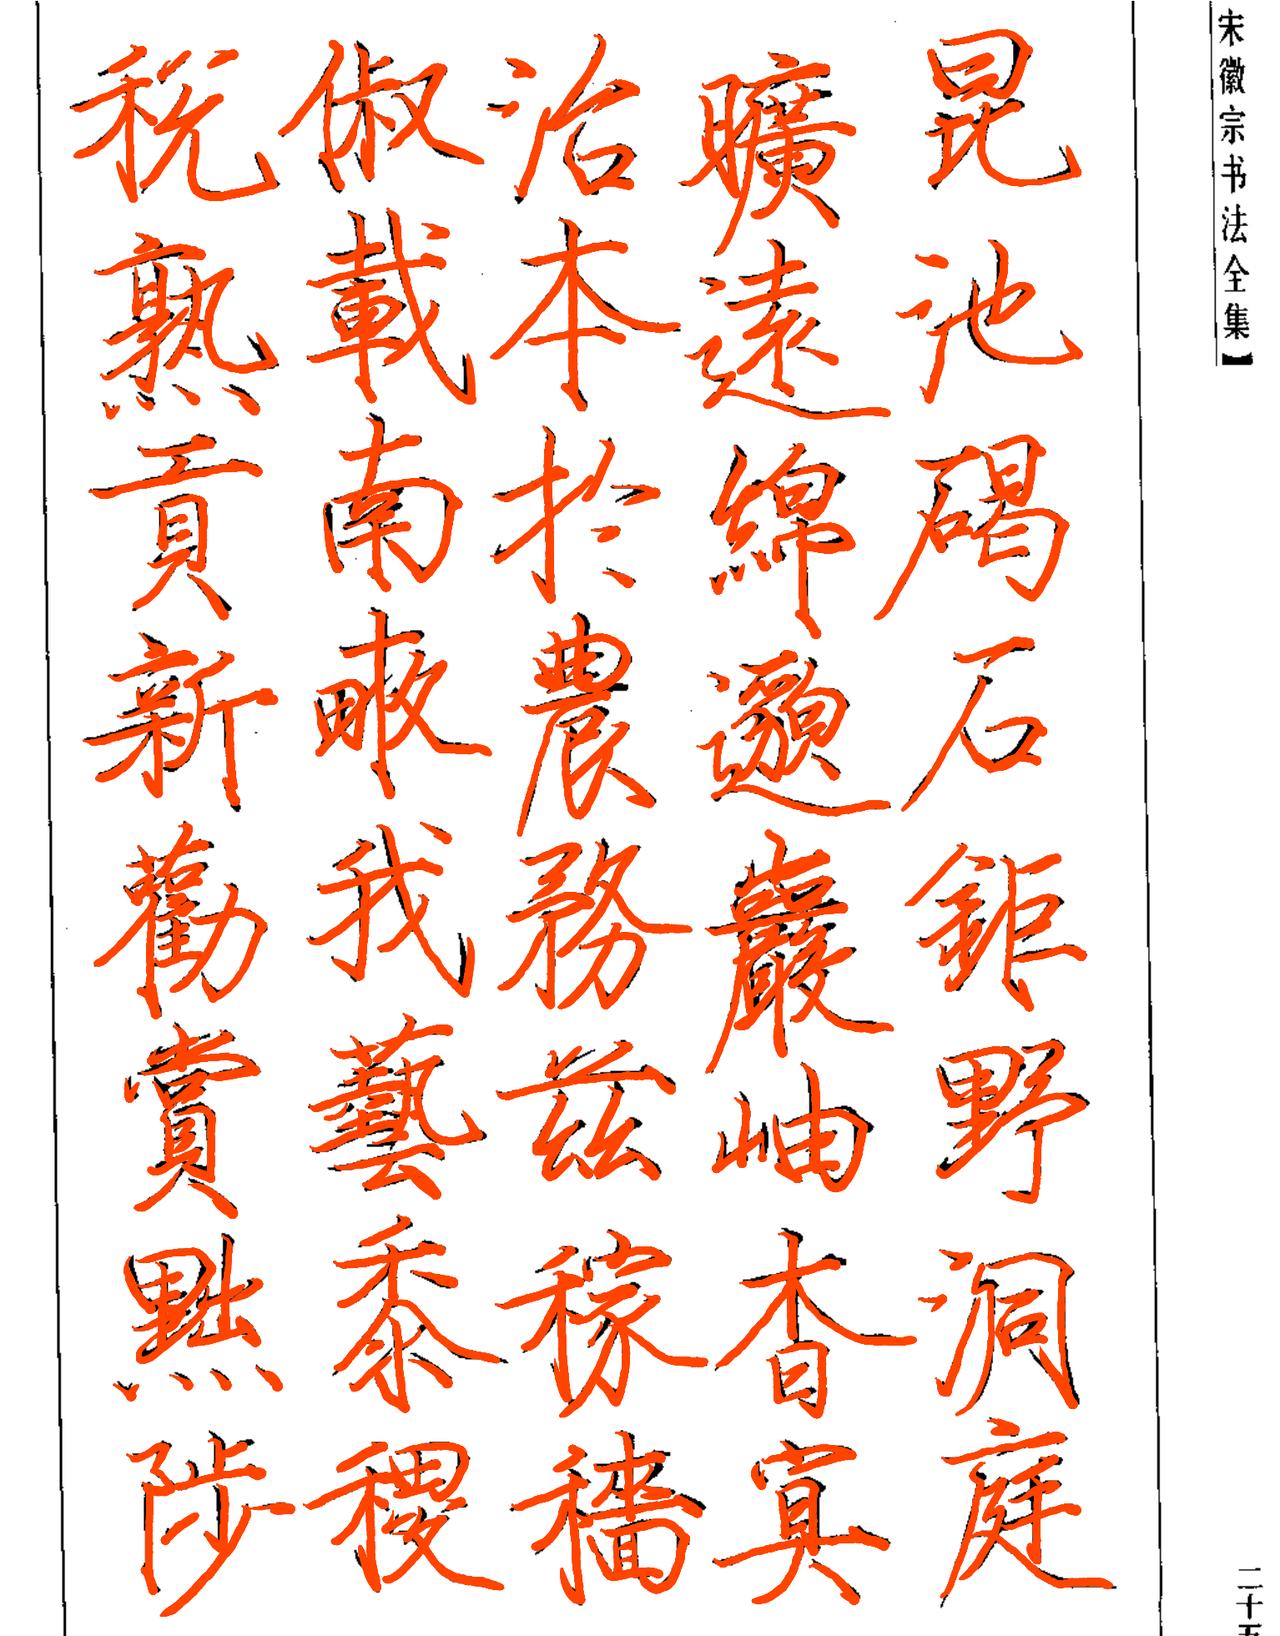 宋徽宗书法全集】
昆池碣石鉅野洞庭
曠遠綿邈巖岫杳冥
治本於農務茲稼穡
俶載南畝我藝黍稷
稅熟貢新勸賞黜陟
二十五